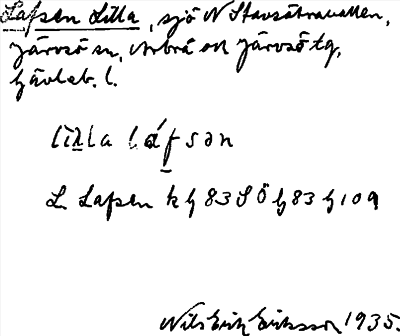 Lafsen Lilla, sjö N Stavsätravallen,
Järvsö sn, Arbrå och Järvsö tg,
Gävleb. l.
lilla láfsən
L. Lafsen kg 83 SÖ g 83 g 109
Nils Erik Eriksson 1935.